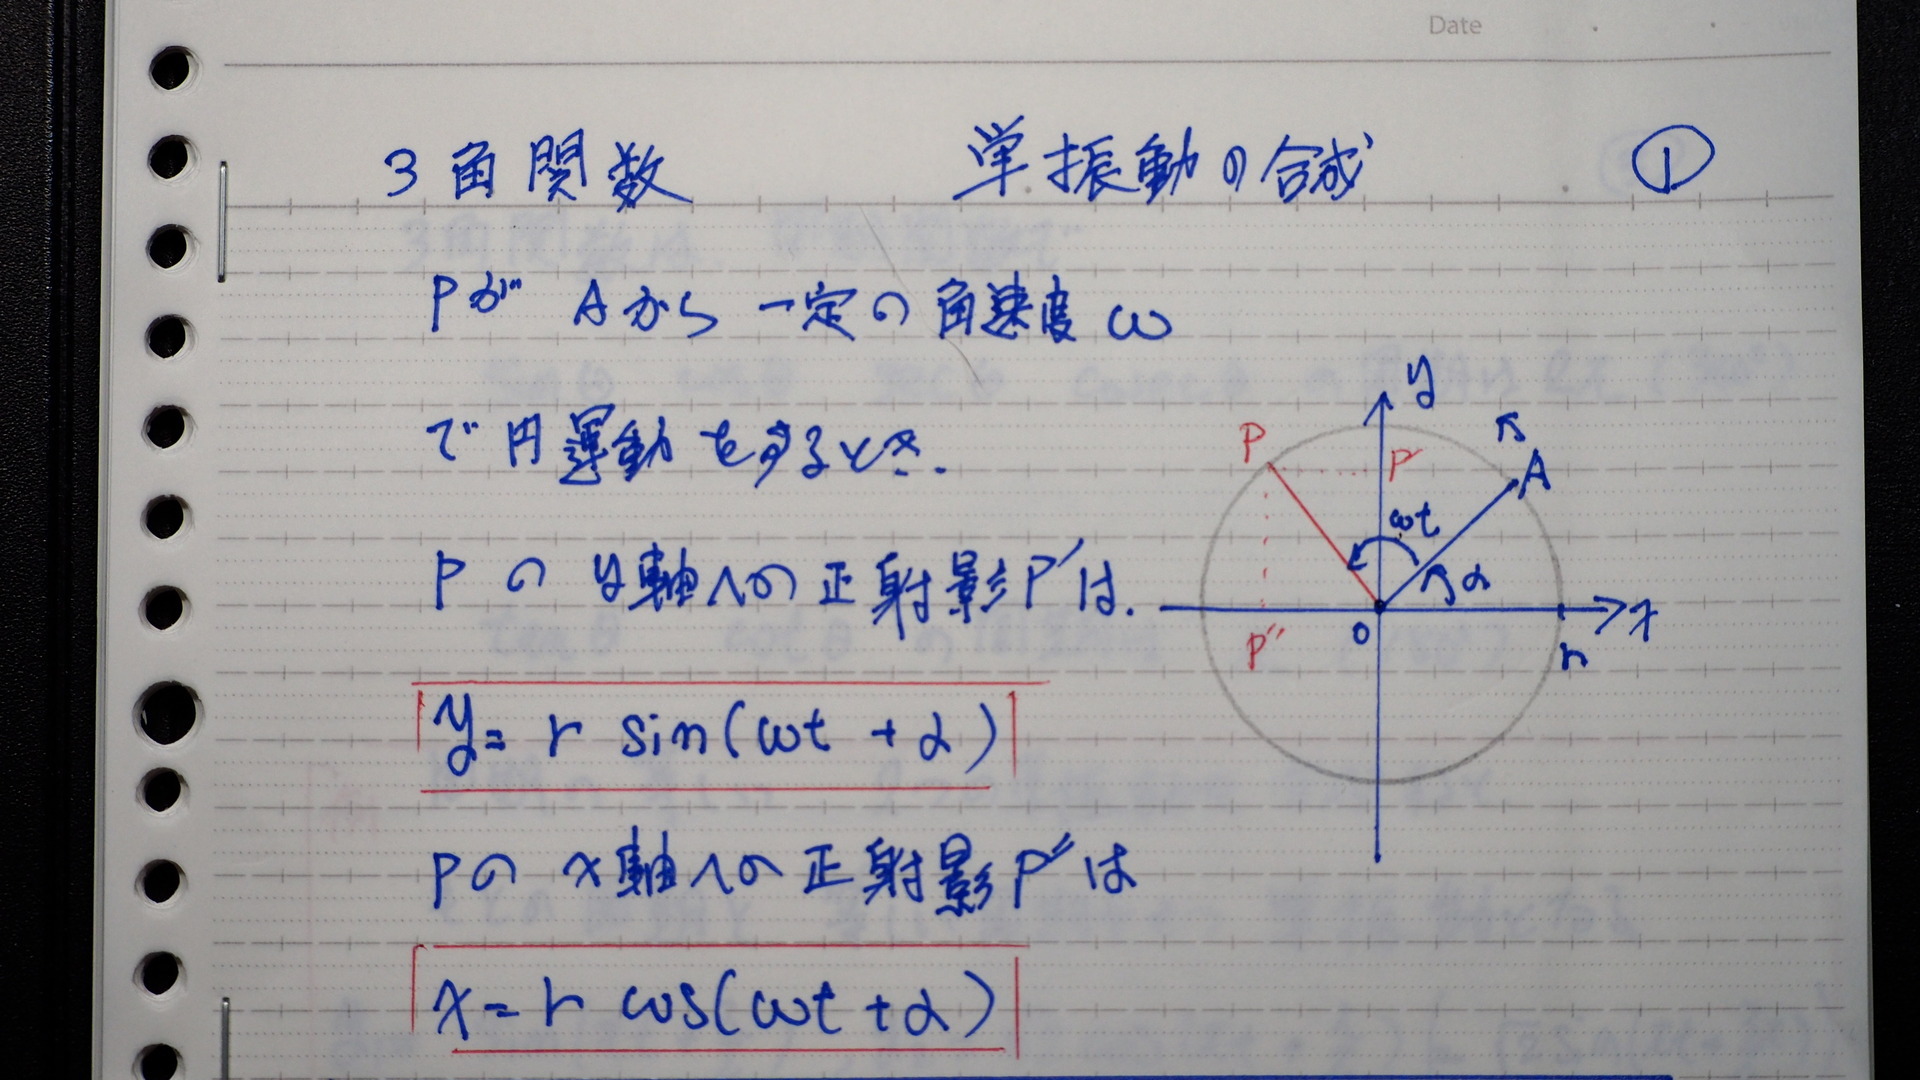 Date
3角関数 単振動の合成 ①
Pが Aから 一定の角速度 ω
で円運動をするとき.
Pの y軸への正射影P′は.
y = r sin(ωt + α)
Pの x軸への正射影P″は
x = r cos(ωt + α)
y
P
P′
A
ωt
α
O
x
P″
r